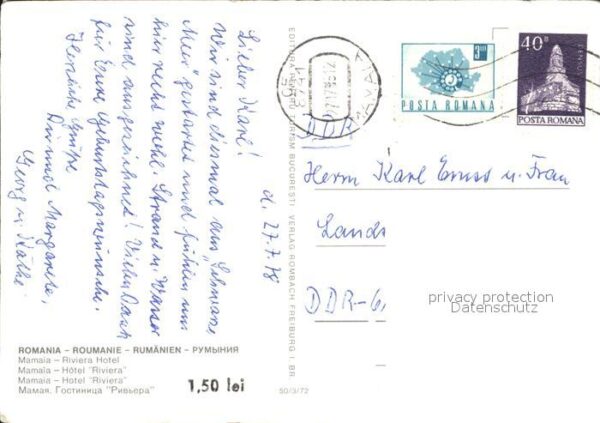 d. 27.7.78
Lieber Karl!
Wir sind diesmal ans "Schwarze
Meer" gestartet und fühlen uns
hier recht wohl. Strand u. Wasser
sind ausgezeichnet! Vielen Dank
für Eure Geburtstagswünsche.
Herzliche Grüße
Dir und Margarete,
Georg u. Käthe
ROMANIA – ROUMANIE – RUMÄNIEN – РУМЫНИЯ
Mamaia – Riviera Hotel
Mamaia – Hôtel "Riviera"
Mamaia – Hotel "Riviera"
Мамая. Гостиница "Ривьера"
1,50 lei
50/3/72
EDITURA TURISM BUCUREȘTI VERLAG ROMBACH FREIBURG I. BR.
MAMAIA
POSTA ROMANA
40 B
POSTA ROMANA
DDR
Herrn Karl u. Frau
DDR-6,
privacy protection
Datenschutz